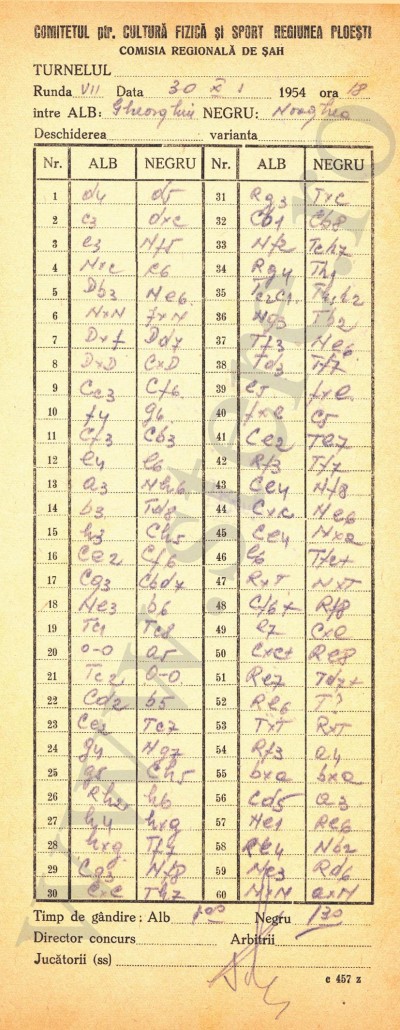 COMITETUL ptr. CULTURĂ FIZICĂ și SPORT REGIUNEA PLOEȘTI
COMISIA REGIONALĂ DE ȘAH
TURNELUL
Runda VII Data 30 XI 1954 ora 18
intre ALB: Gheorghiu NEGRU:
Deschiderea varianta
Nr. ALB NEGRU Nr. ALB NEGRU
1 d4 d5 31 Rg3 TxC
2 c3 dxc 32 Cb1 Cb8
3 e3 Nf5 33 Nf2 Tch7
4 Nxc e6 34 Rg4 Th1
5 Db3 Ne6 35 Tc2c1 Th1h2
6 NxN fxN 36 Ng3 Tb2
7 Dxf Dd7 37 Tf3 Ne6
8 DxD CxD 38 Td3 Tf7
9 Cc3 Cf6 39 e5 fxe
10 f4 g6 40 fxe c5
11 Cf3 Cb3 41 Ce2 Te7
12 e4 e6 42 Rf3 Tf7
13 a3 Nh6 43 Ce4 Nf8
14 b3 Td8 44 Cxc Ne6
15 h3 Ch5 45 Ce4 Nxa
16 Ce2 Cf6 46 e6 Tfc+
17 Cg3 Cbd7 47 RxT NxT
18 Ne3 b6 48 Cf6+ Rf8
19 Tc1 Tc8 49 e7 Cxe
20 o-o a5 50 Cxc+ Re8
21 Tc2 o-o 51 Re7 Td7+
22 Cd2 b5 52 Re6 T
23 Ce2 Tc7 53 TxT RxT
24 g4 Ng7 54 Rf3 a4
25 g5 Ch5 55 bxa bxa
26 Rh2 h6 56 Cd5 a3
27 h4 hxg 57 Ne1 Re6
28 hxg Tf7 58 Re4 Nb2
29 Cg3 Nf8 59 Ne3 Rd6
30 CxC Th7 60 NxN axN
Timp de gândire: Alb 1:00 Negru 1:30
Director concurs Arbitrii
Jucătorii (ss)
c 457 z
www.stere.ro